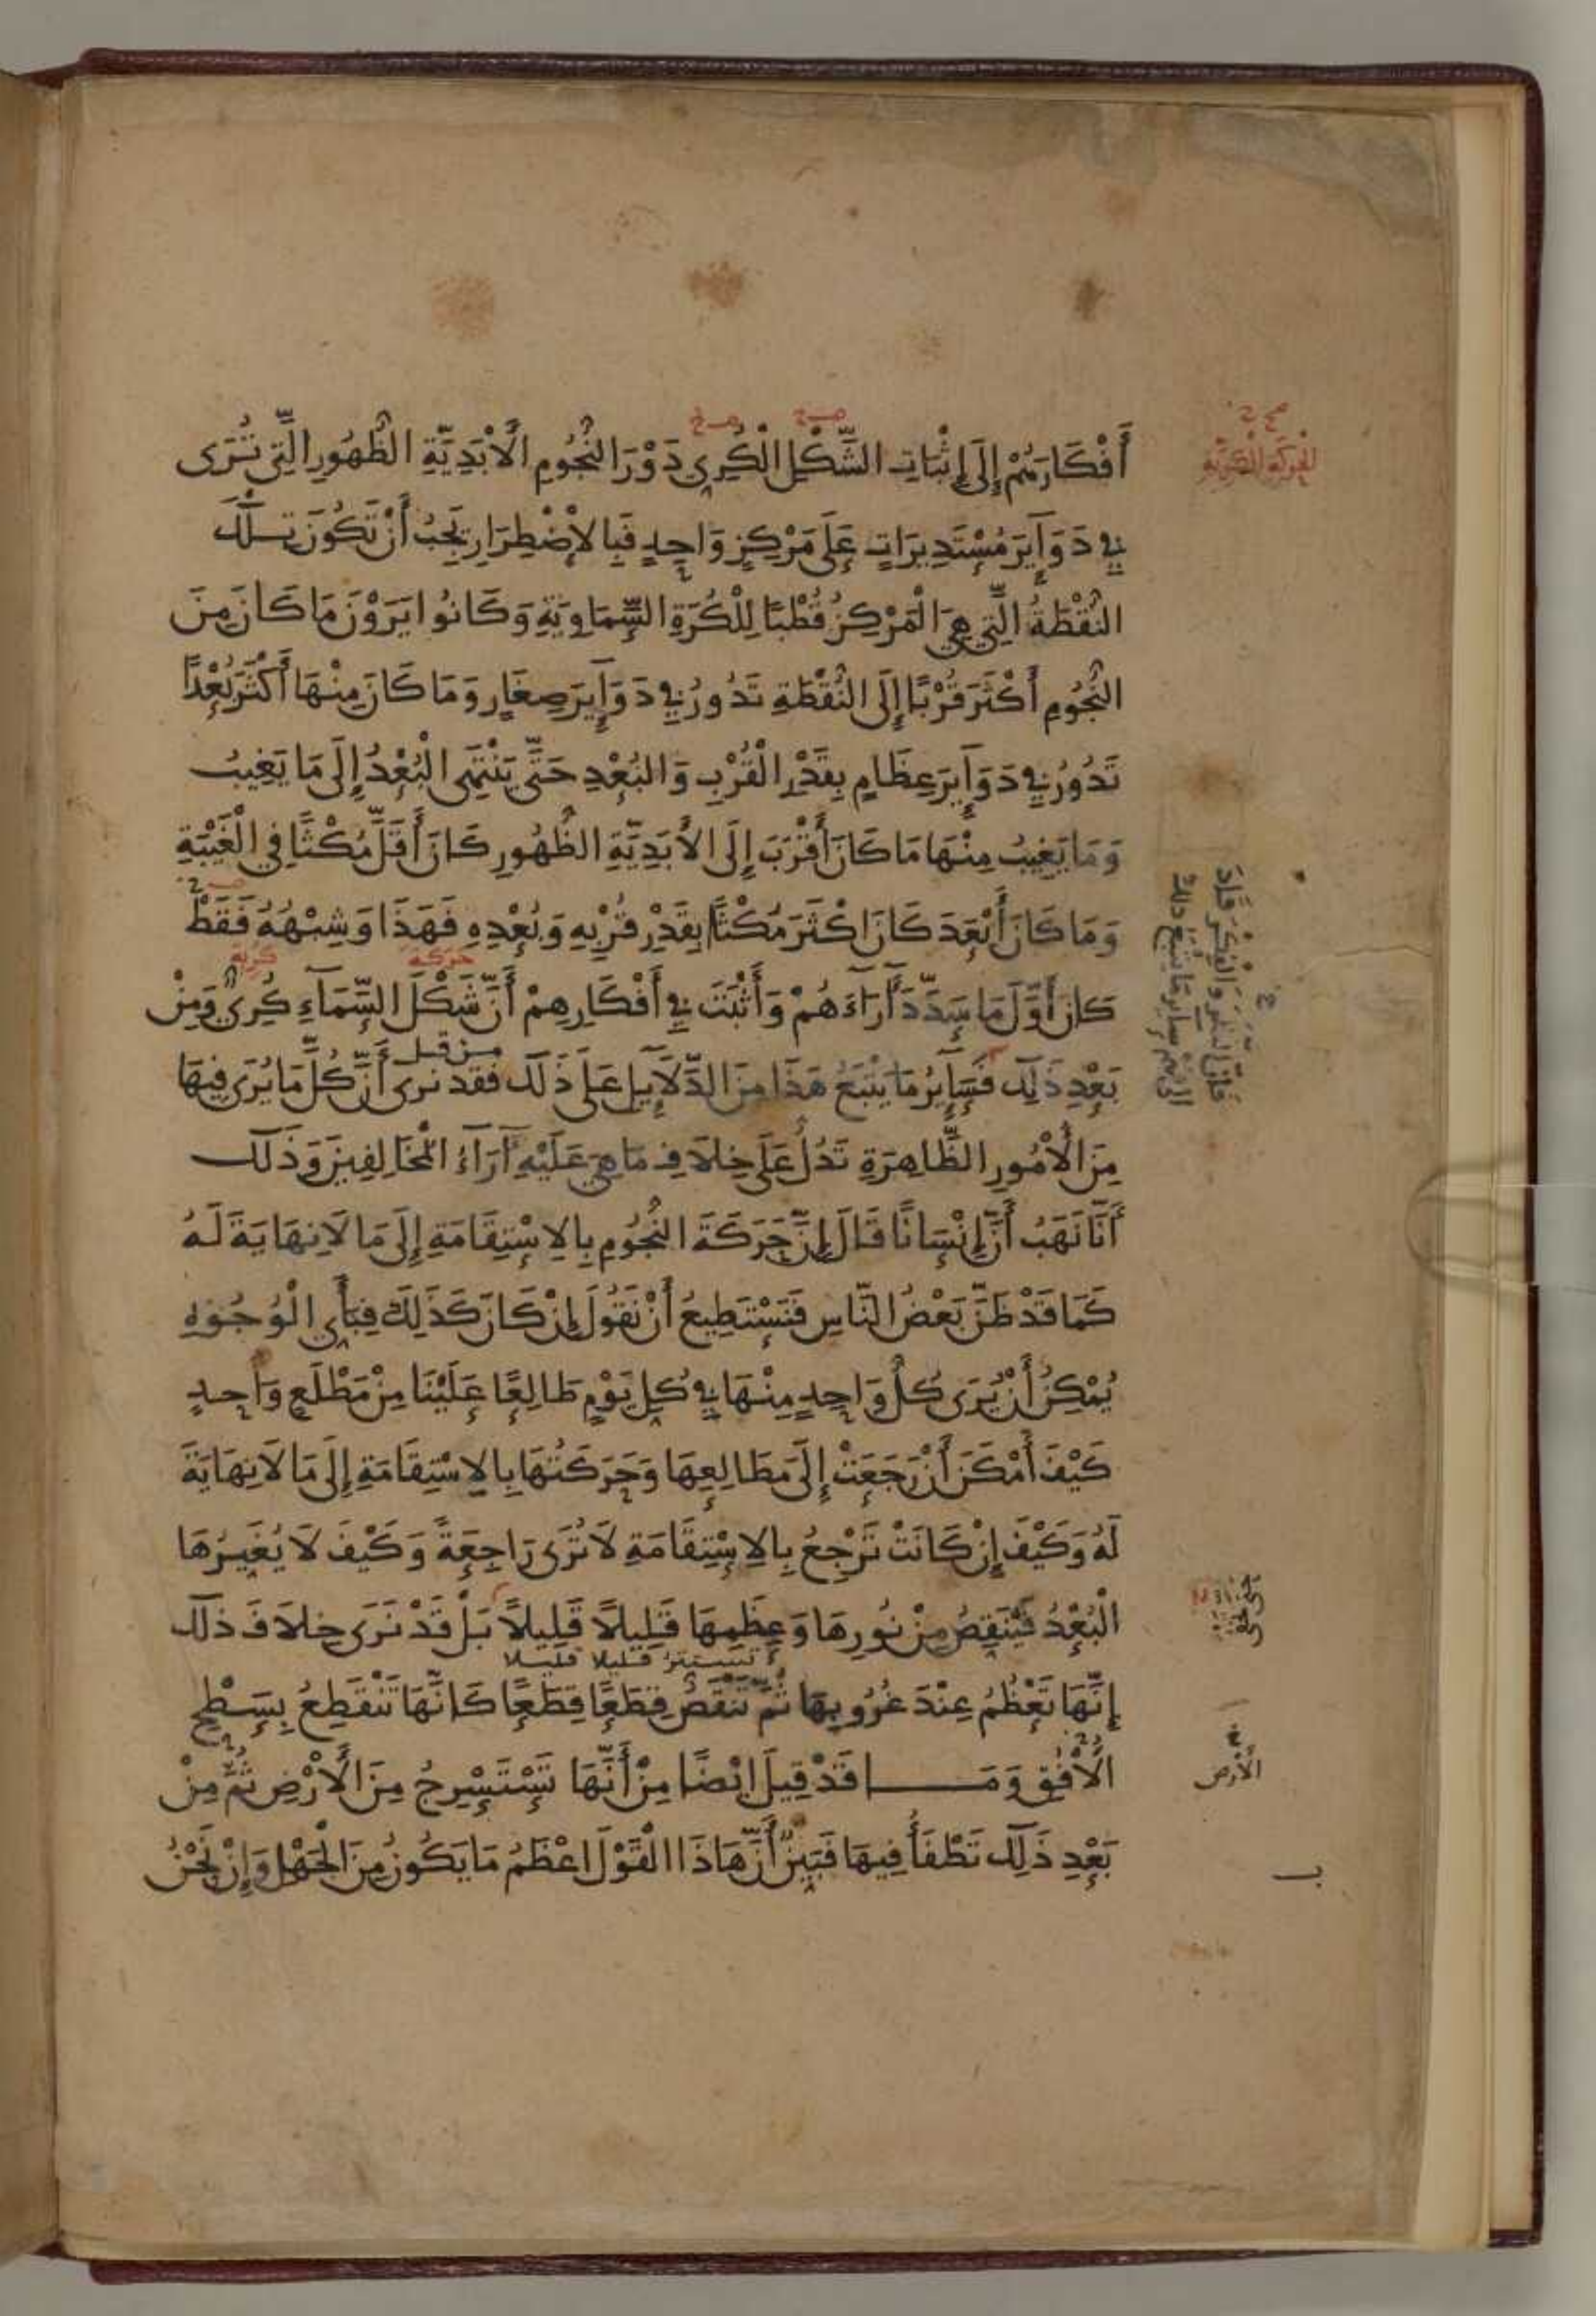 أَفْكَارَهُمْ إِلَى إِثْبَاتِ الشَّكْلِ الْكُرِيِ دَوْرَ النُّجُومِ الْأَبَدِيَّةِ الظُّهُورِ الَّتِي تُرَى
فِي دَوَآيِرَ مُسْتَدِيرَاتٍ عَلَى مَرْكِزٍ وَاحِدٍ فَبِالْاِضْطِرَارِ يَجِبُ أَنْ تَكُونَ تِلْكَ
النُّقْطَةُ الَّتِي هِيَ الْمَرْكِزُ قُطْبًا لِلْكُرَةِ السَّمَاوِيَةِ وَكَانُوا يَرَوْنَ مَا كَانَ مِنَ
النُّجُومِ أَكْثَرَ قُرْبًا إِلَى النُّقْطَةِ تَدُورُ فِي دَوَآيِرَ صِغَارٍ وَمَا كَانَ مِنْهَا أَكْثَرَ بُعْدًا
تَدُورُ فِي دَوَآيِرَ عِظَامٍ بِقَدْرِ الْقُرْبِ وَالبُعْدِ حَتَّى يَنْتَهِى الْبُعْدُ إِلَى مَا يَغِيبُ
وَمَا يَغِيبُ مِنْهَا مَا كَانَ أَقْرَبَ إِلَى الأَبَدِيَّةِ الظُّهُورِ كَانَ أَقَلَّ مُكْثًا فِي الْغَيْبَةِ
وَمَا كَانَ أَبْعَدَ كَانَ اكْثَرَ مُكْثًا بِقَدْرِ قُرْبِهِ وَبُعْدِهِ فَهَذَا وَشِبْهُهُ فَقَطْ
كَانَ أَوَّلَ مَا سَدَّدَ آرَاءَهُمْ وَأَثْبَتَ فِي أَفْكَارِهِمْ أَنَّ شَكْلَ السَّمَآءِ كُرِىٌّ وَمِنْ
حركة كرية
بَعْدِ ذَلِكَ فَسَآيِرُ مَا يَتْبَعُ هَذَا مِنَ الدَّلَآيِلِ عَلَى ذَلِكَ فَقَدْ نَرَى أَنَّ كُلَّ مَا يُرَى فِيهَا
مِنَ الْأُمُورِ الظَّاهِرَةِ تَدُلُّ عَلَى خِلَافِ مَا هِيَ عَلَيْهِ آرَآءُ الْمُخَالِفِينَ وَذَلِكَ
أَنَّا نَهَبُ أَنَّ إِنْسَانًا قَالَ إِنَّ حَرَكَةَ النُّجُومِ بِالِاسْتِقَامَةِ إِلَى مَا لَا نِهَايَةَ لَهُ
كَمَا قَدْ ظَنَّ بَعْضُ النَّاسِ فَنَسْتَطِيعُ أَنْ نَقُولَ إِنْ كَانَ كَذَلِكَ فَبِأَيِ الْوُجُوهِ
يُمْكِنُ أَنْ يُرَى كُلُّ وَاحِدٍ مِنْهَا فِي كُلِ يَوْمٍ طَالِعًا عَلَيْنَا مِنْ مَطْلَعٍ وَاحِدٍ
كَيْفَ أَمْكَنَ أَنْ رَجَعَتْ إِلَى مَطَالِعِهَا وَحَرَكَتُهَا بِالِاسْتِقَامَةِ إِلَى مَا لَا نِهَايَةَ
لَهُ وَكَيْفَ إِنْ كَانَتْ تَرْجِعُ بِالِاسْتِقَامَةِ لَا تُرَى رَاجِعَةً وَكَيْفَ لَا يُغَيِرُهَا
الْبُعْدُ فَيَنْقِصُ مِنْ نُورِهَا وَعِظَمِهَا قَلِيلًا قَلِيلًا بَلْ قَدْ نَرَى خِلَافَ ذَلِكَ
تستتر قليلا قليلا
إِنَّهَا تَعْظُمُ عِنْدَ غُرُوبِهَا ثُمَّ تَنْقُصُ قِطَعًا قِطَعًا كَانَّهَا تَنْقَطِعُ بِسَطْحِ
الْأُفُقِ وَمَا قَدْ قِيلَ ايْضًا مِنْ أَنَّهَا تَسْتَسْرِجُ مِنَ الْأَرْضِ ثُمَّ مِنْ
بَعْدِ ذَلِكَ تَطْفَأُ فِيهَا فَبَيِنٌ أَنَّ هَاذَا الْقَوْلَ اعْظَمُ مَا يَكُونُ مِنَ الْجَهْلِ وَإِنْ نَحْنُ
الْحَركةِ الكُريّةِ
الْأَرض